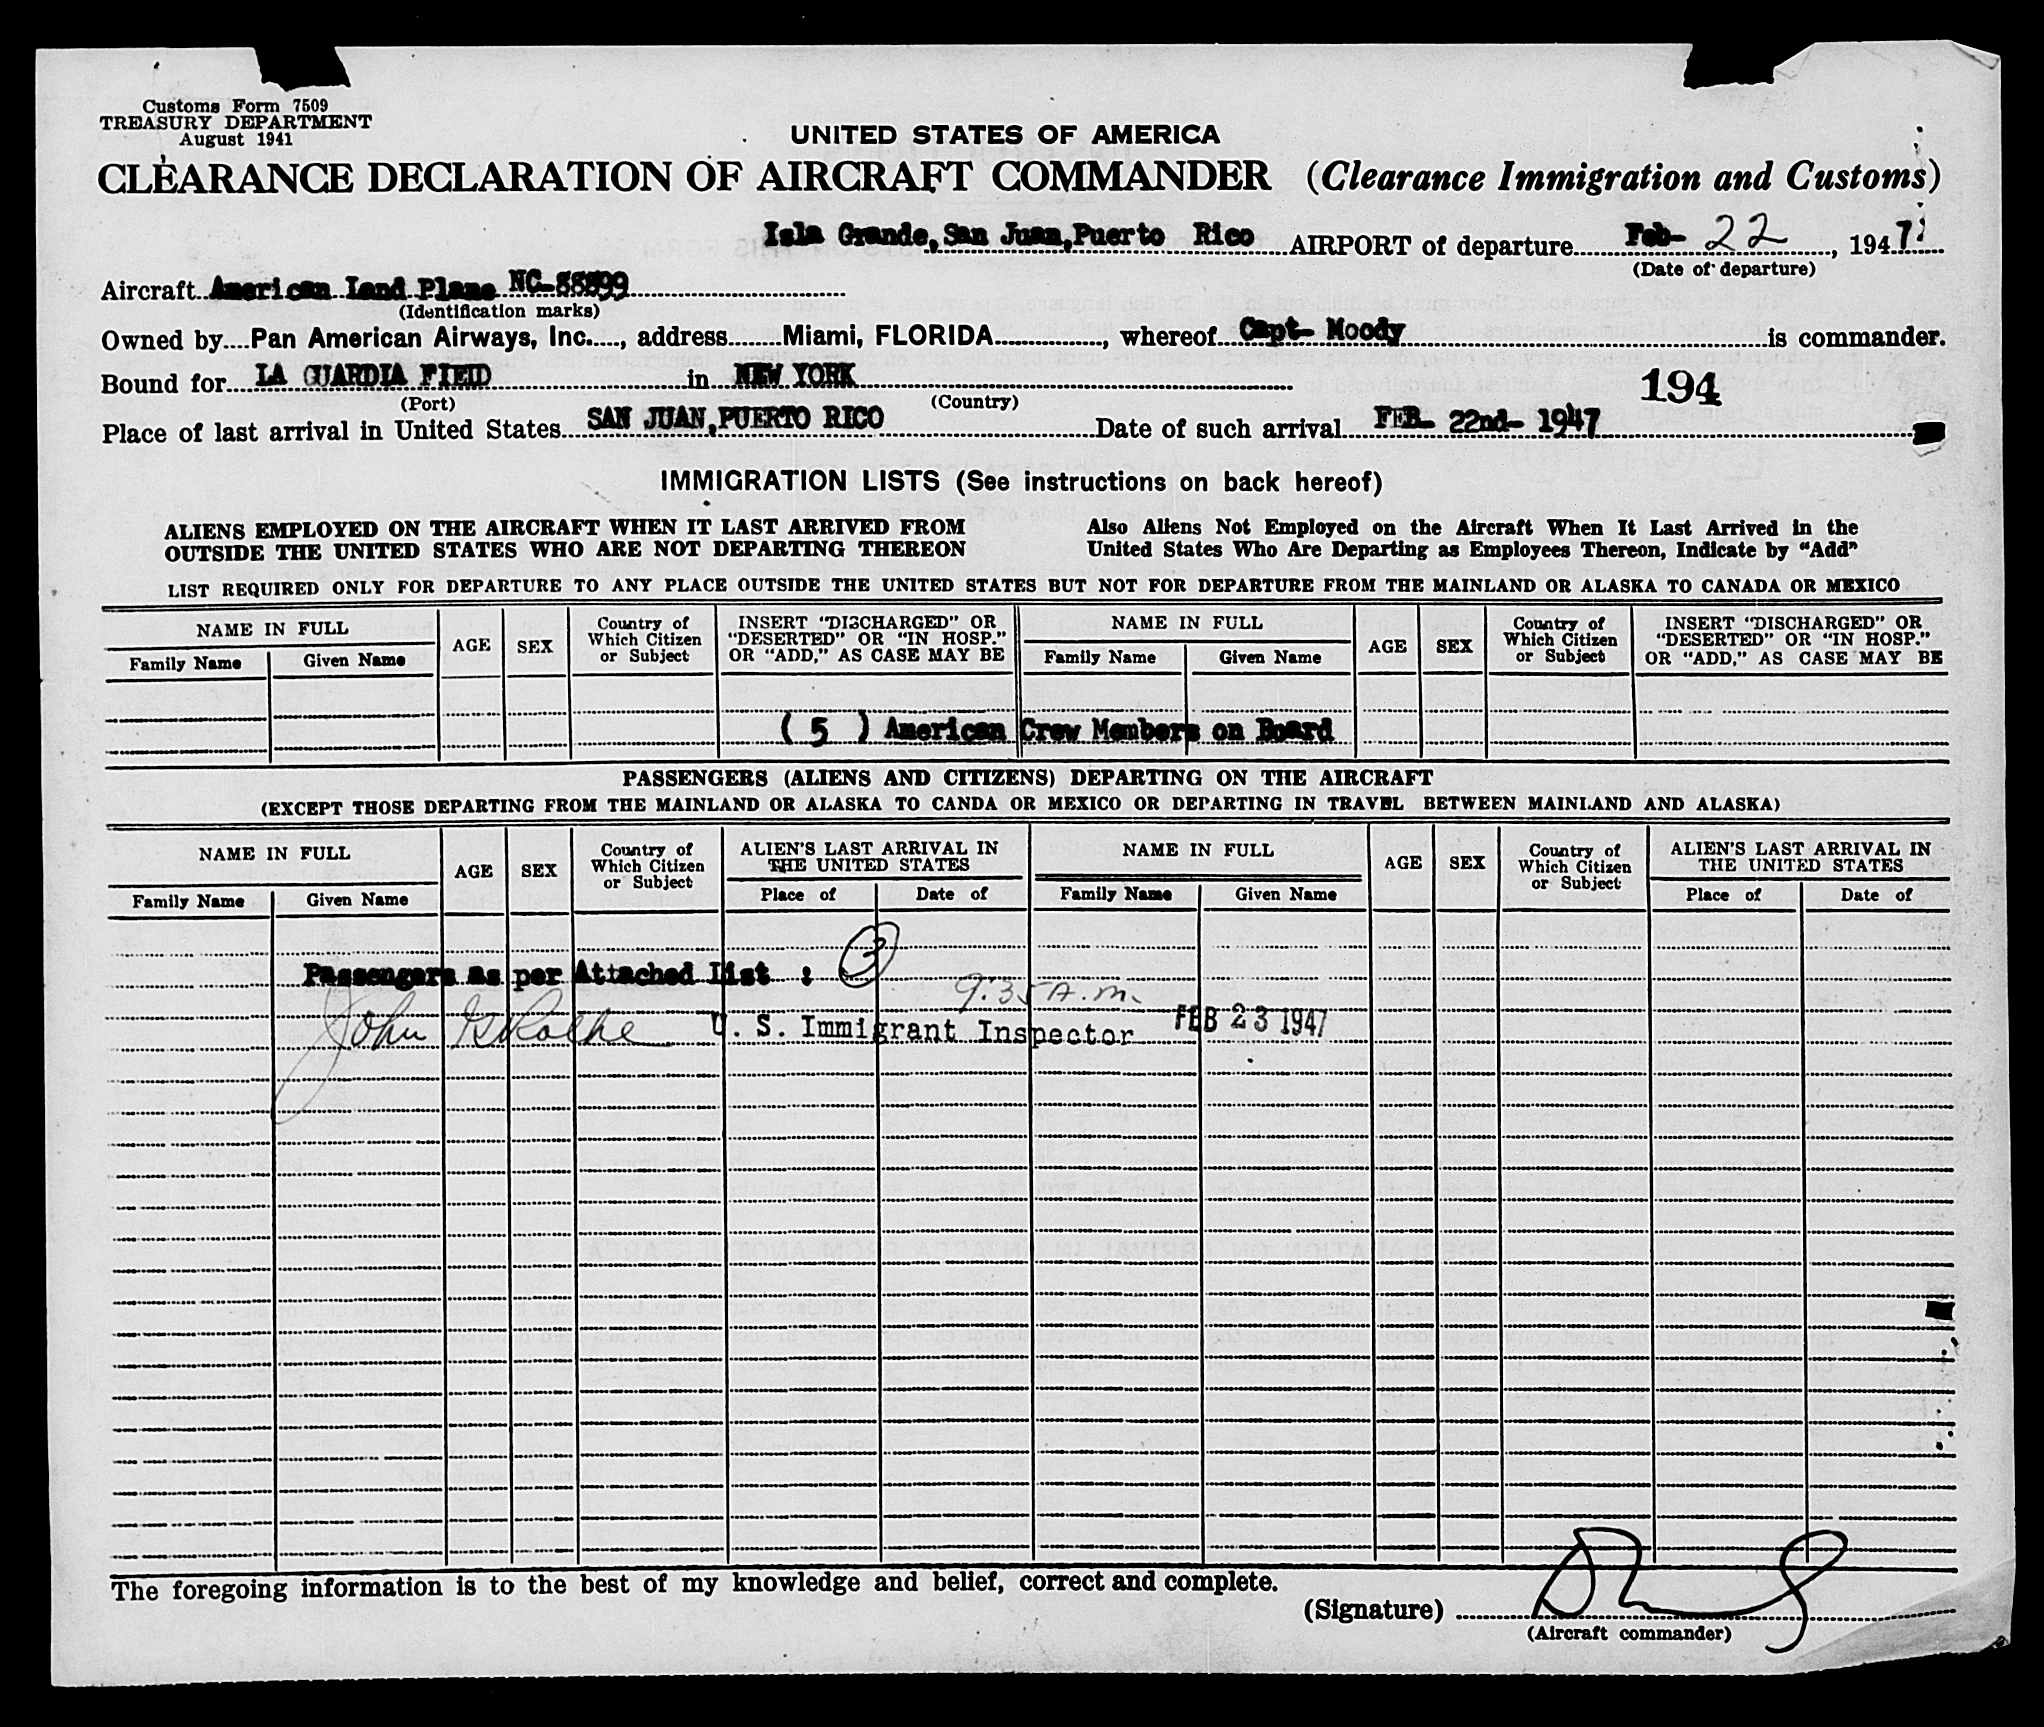 Customs Form 7509
TREASURY DEPARTMENT
August 1941
UNITED STATES OF AMERICA
CLEARANCE DECLARATION OF AIRCRAFT COMMANDER (Clearance Immigration and Customs)
Isla Grande, San Juan, Puerto Rico AIRPORT of departure Feb- 22, 1947
(Date of departure)
Aircraft American Land Plane NC-88899
(Identification marks)
Owned by Pan American Airways, Inc., address Miami, FLORIDA, whereof Capt- Moody is commander.
Bound for LA GUARDIA FIELD in NEW YORK 194
(Port) (Country)
Place of last arrival in United States SAN JUAN, PUERTO RICO Date of such arrival FEB- 22nd- 1947
IMMIGRATION LISTS (See instructions on back hereof)
ALIENS EMPLOYED ON THE AIRCRAFT WHEN IT LAST ARRIVED FROM Also Aliens Not Employed on the Aircraft When It Last Arrived in the
OUTSIDE THE UNITED STATES WHO ARE NOT DEPARTING THEREON United States Who Are Departing as Employees Thereon, Indicate by "Add"
LIST REQUIRED ONLY FOR DEPARTURE TO ANY PLACE OUTSIDE THE UNITED STATES BUT NOT FOR DEPARTURE FROM THE MAINLAND OR ALASKA TO CANADA OR MEXICO
NAME IN FULL AGE SEX Country of Which Citizen or Subject INSERT "DISCHARGED" OR "DESERTED" OR "IN HOSP." OR "ADD," AS CASE MAY BE NAME IN FULL AGE SEX Country of Which Citizen or Subject INSERT "DISCHARGED" OR "DESERTED" OR "IN HOSP." OR "ADD," AS CASE MAY BE
Family Name Given Name Family Name Given Name
( 5 ) American Crew Members on Board
PASSENGERS (ALIENS AND CITIZENS) DEPARTING ON THE AIRCRAFT
(EXCEPT THOSE DEPARTING FROM THE MAINLAND OR ALASKA TO CANDA OR MEXICO OR DEPARTING IN TRAVEL BETWEEN MAINLAND AND ALASKA)
NAME IN FULL AGE SEX Country of Which Citizen or Subject ALIEN'S LAST ARRIVAL IN THE UNITED STATES NAME IN FULL AGE SEX Country of Which Citizen or Subject ALIEN'S LAST ARRIVAL IN THE UNITED STATES
Family Name Given Name Place of Date of Family Name Given Name Place of Date of
Passengers as per Attached List : 3
9:35 A.m.
John U. S. Immigrant Inspector FEB 23 1947
The foregoing information is to the best of my knowledge and belief, correct and complete.
(Signature)
(Aircraft commander)